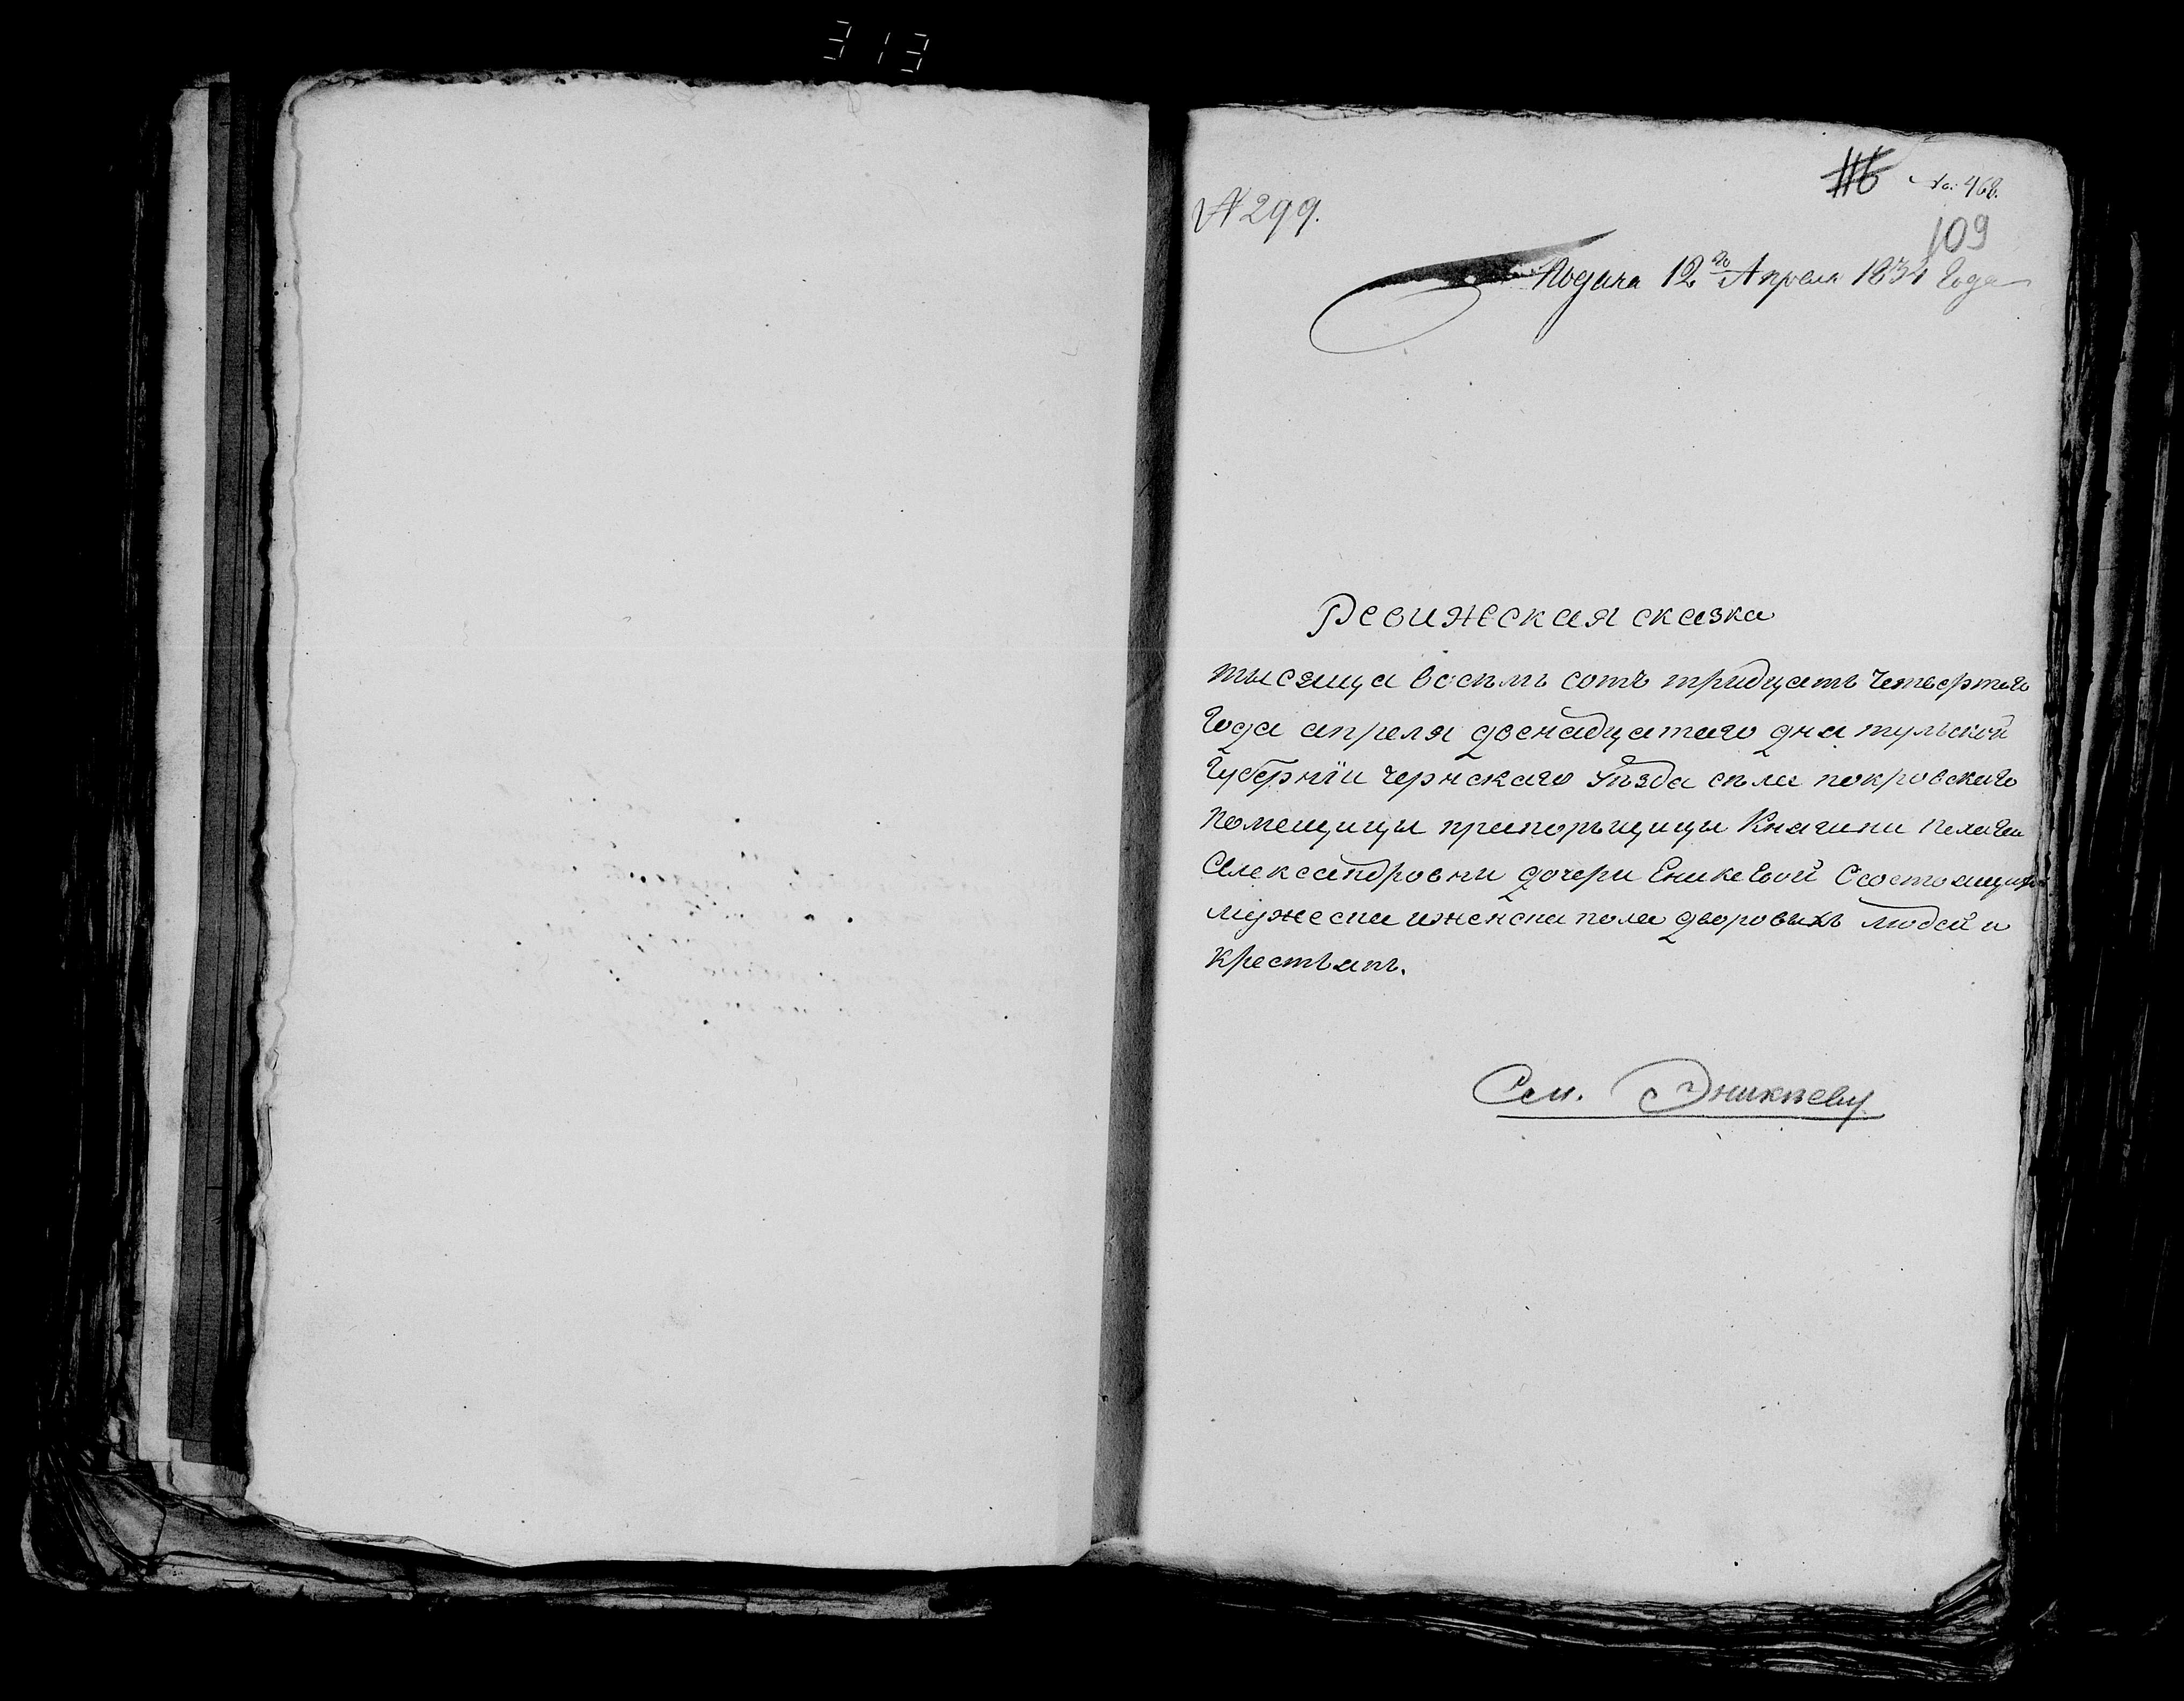 313
№ 299.
116 No: 468.
109
Подана 12го Апреля 1834 Года
Ревижская сказка
тысяща восемь сотъ тридцать четвертаго
Года апреля двенадцатаго дня тульской
Губернïи чернскаго Уъзда съла покровскаго
Помещицы прапорьщицы Княгини Пелагеи
Александровни дочери Еникевой О состоящихъ
мужеска иженска пола дворовыхъ людей и
крестьянъ.
Сел. Эникѣеву